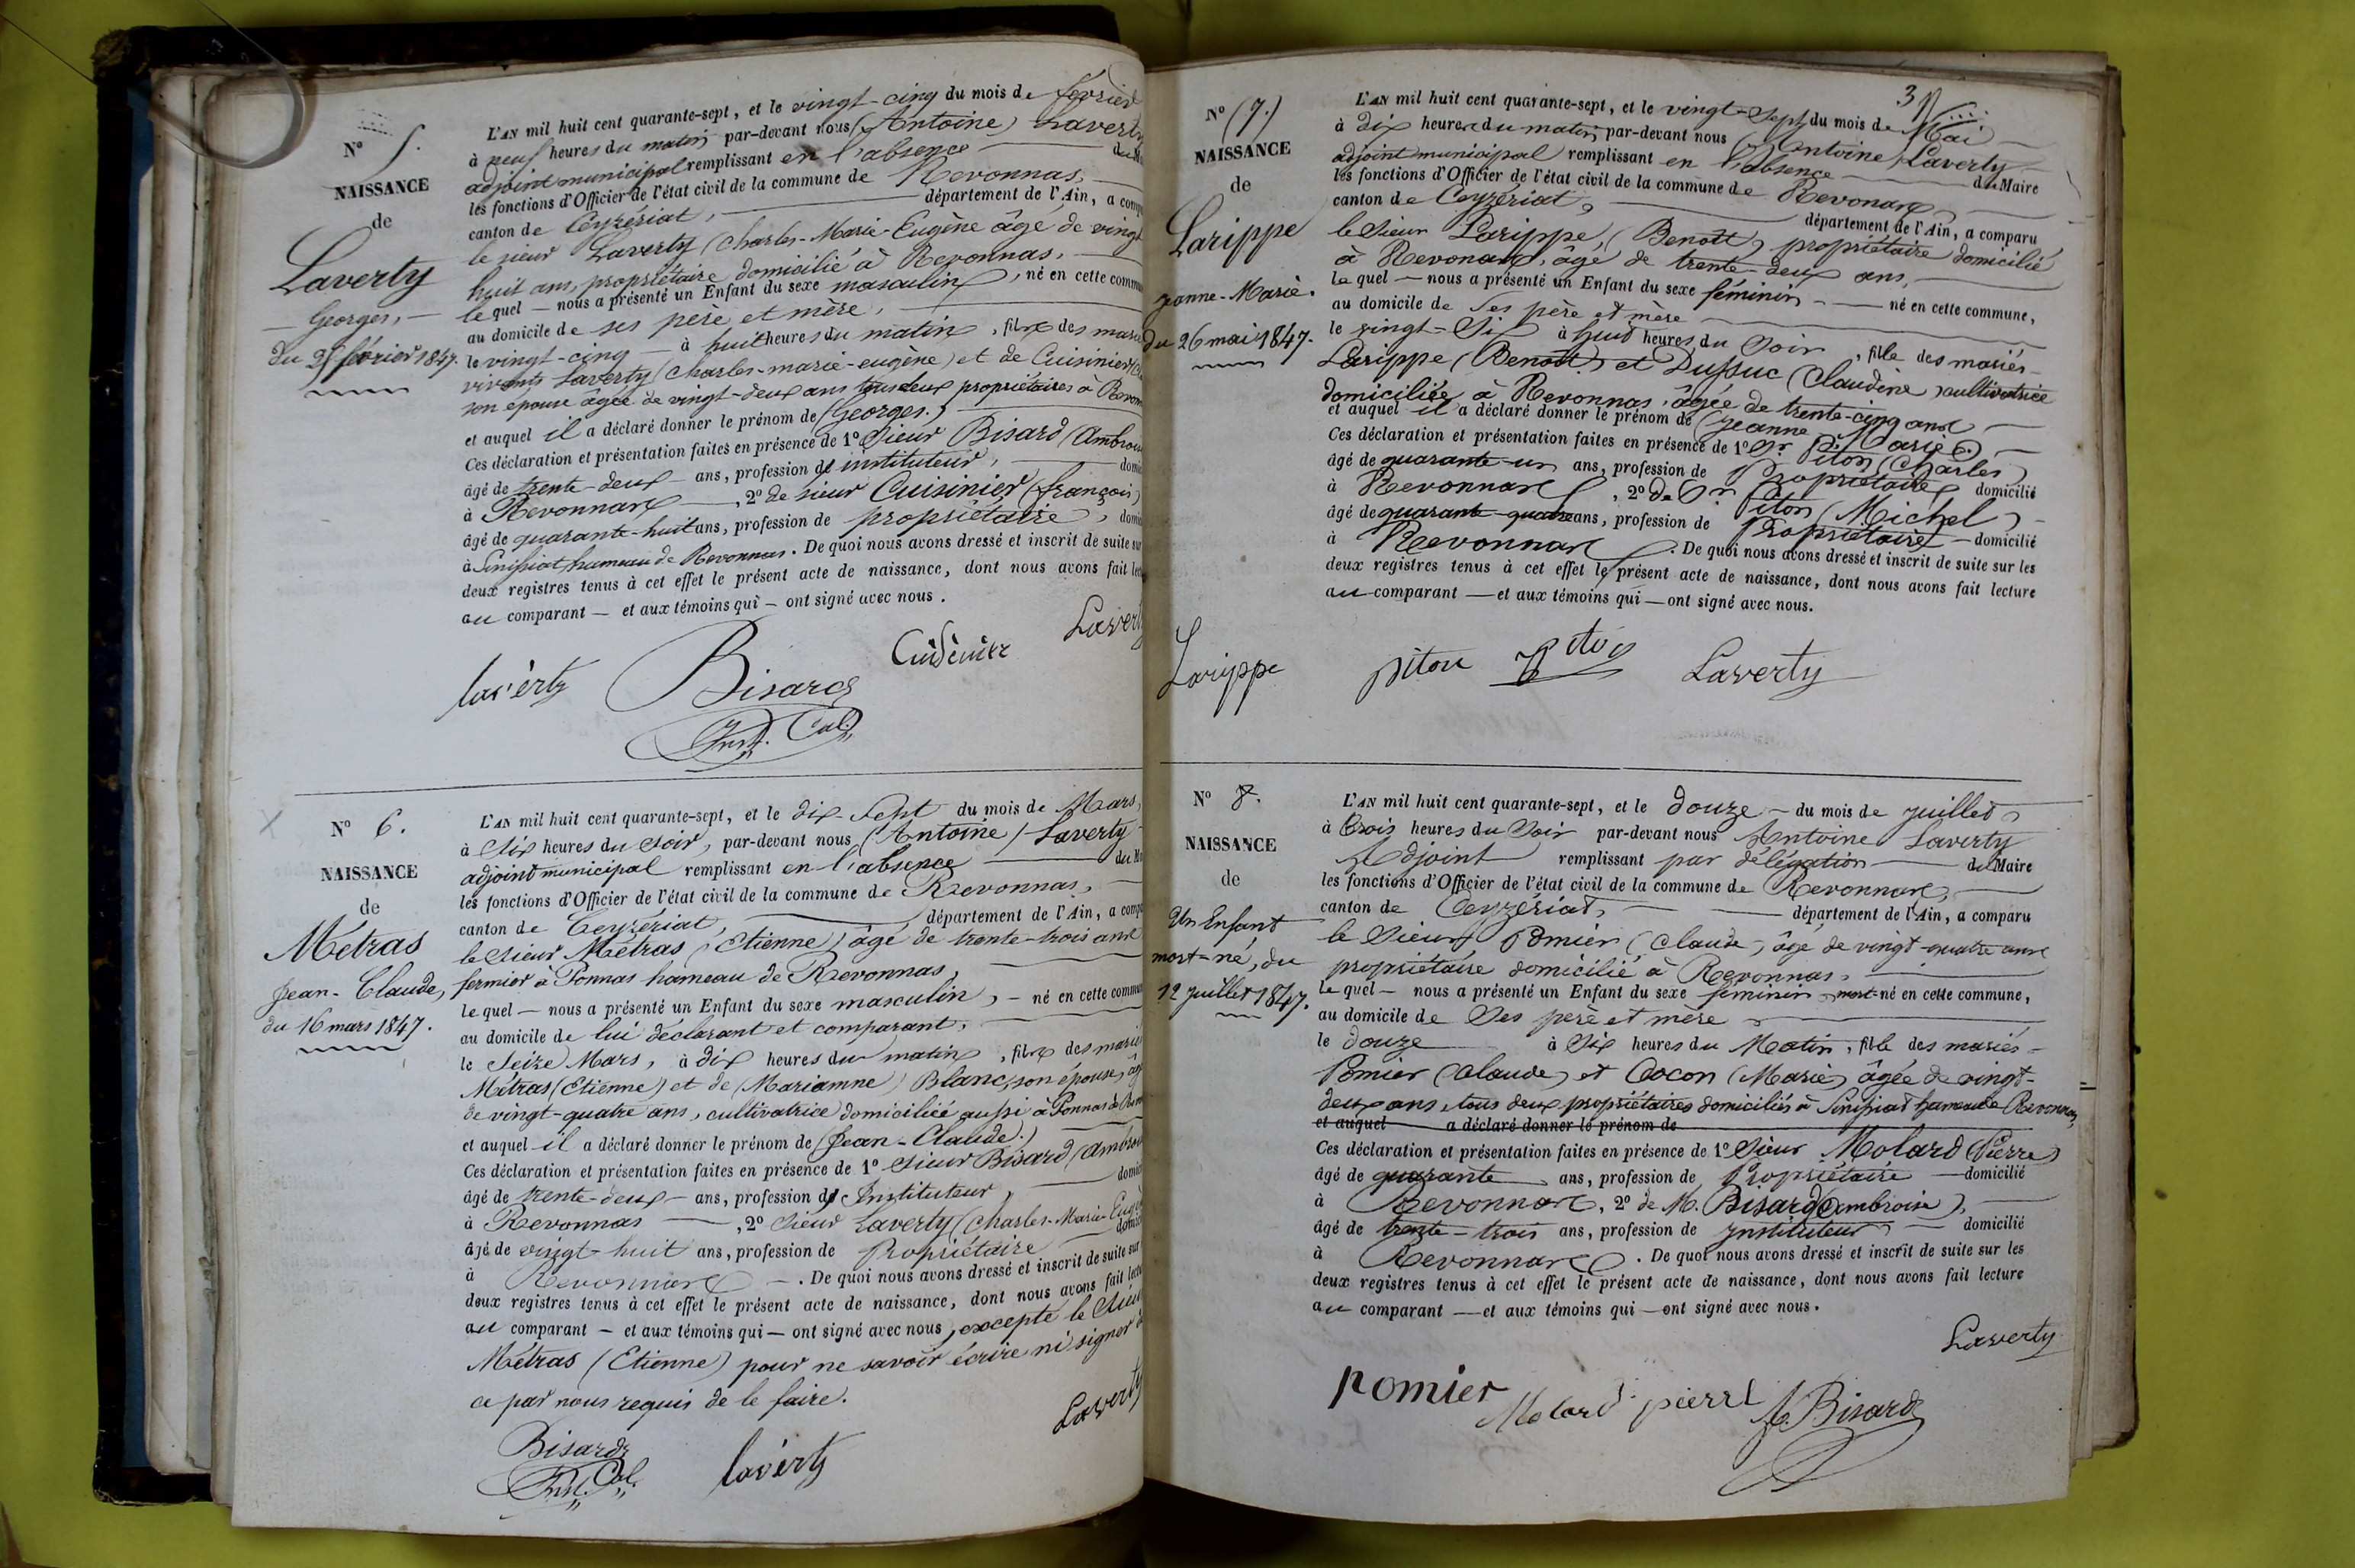 N° 5.
NAISSANCE
de
Laverty
Georges,
du 25 février 1847.
L'AN mil huit cent quarante-sept, et le vingt-cinq du mois de février
à neuf heures du matin par-devant nous (Antoine) Laverty
adjoint municipal remplissant en l'absence du
les fonctions d'Officier de l'état civil de la commune de Revonnas,
canton de Ceyzériat, département de l'Ain, a comp
le sieur Laverty (Charles-Marie-Eugène âgé de vingt
huit ans, propriétaire domicilié à Revonnas,
le quel — nous a présenté un Enfant du sexe masculin, né en cette commu
au domicile de ses père et mère,
le vingt-cinq — à huit heures du matin, fils des marié
vivants Laverty (Charles-marie-eugène) et de Cuisinier
son épouse âgée de vingt-deux ans tous deux propriétaires à Revon
et auquel il a déclaré donner le prénom de (Georges.)
Ces déclaration et présentation faites en présence de 1° Sieur Bisard (Ambroi
âgé de trente-deux — ans, profession d' instituteur, domi
à Revonnas —, 2° de sieur Cuisinier (françois)
âgé de quarante-huit ans, profession de propriétaire, domi
à Sinissiat hameau de Revonnas. De quoi nous avons dressé et inscrit de suite sur
deux registres tenus à cet effet le présent acte de naissance, dont nous avons fait lec
au comparant — et aux témoins qui — ont signé avec nous.
Lavert
lavèrty Bisard Cuisinier
Inst. Cal.
N° 6.
NAISSANCE
de
Métras
Jean-Claude,
du 16 mars 1847.
L'AN mil huit cent quarante-sept, et le dix-sept du mois de Mars,
à six heures du soir, par-devant nous (Antoine) Laverty
adjoint municipal remplissant en l'absence du M
les fonctions d'Officier de l'état civil de la commune de Revonnas,
canton de Ceyzériat, département de l'Ain, a comp
le sieur Métras (Etienne) âgé de trente-trois ans
fermier à Ponnas hameau de Revonnas,
le quel — nous a présenté un Enfant du sexe masculin, — né en cette commu
au domicile de lui déclarant et comparant,
le Seize Mars, à dix heures du matin, fils des marié
Métras (Etienne) et de (Mariamne) Blanc, son épouse, âg
de vingt-quatre ans, cultivatrice domiciliée aussi à Ponnas de
et auquel il a déclaré donner le prénom de (Jean-Claude.)
Ces déclaration et présentation faites en présence de 1° sieur Bisard (Ambroi
âgé de trente-deux — ans, profession d' Instituteur, domi
à Revonnas —, 2° sieur Laverty (Charles-Marie-Eug
âgé de vingt-huit ans, profession de Propriétaire domic
à Revonnas —. De quoi nous avons dressé et inscrit de suite sur
deux registres tenus à cet effet le présent acte de naissance, dont nous avons fait lect
au comparant — et aux témoins qui — ont signé avec nous, excepté le Sieur
Métras (Etienne) pour ne savoir écrire ni signer
ce par nous requis de le faire.
Bisard lavèrty Laverty
Inst. Cal.
3
N° (7.)
NAISSANCE
de
Larippe
Jeanne-Marie.
du 26 mai 1847.
L'AN mil huit cent quarante-sept, et le vingt-sept du mois de Mai
à dix heures du matin par-devant nous (Antoine) Laverty
adjoint municipal remplissant en l'absence du Maire
les fonctions d'Officier de l'état civil de la commune de Revonas,
canton de Ceyzériat, département de l'Ain, a comparu
le Sieur Larippe, (Benoît) propriétaire domicilié
à Revonas, âgé de trente-deux ans,
le quel — nous a présenté un Enfant du sexe féminin — né en cette commune,
au domicile de Ses père et mère
le vingt-Six à huit heures du Soir, fille des mariés
Larippe (Benoît) et Dussuc (Claudine) cultivatrice
domiciliée à Revonnas, âgée de trente-cinq ans
et auquel il a déclaré donner le prénom de (Jeanne Marie).
Ces déclaration et présentation faites en présence de 1° Sr. Piton (Charles)
âgé de quarante-un ans, profession de Propriétaire domicilié
à Revonnas, 2° de Sr Piton (Michel)
âgé de quarante-quatre ans, profession de Propriétaire — domicilié
à Revonnas. De quoi nous avons dressé et inscrit de suite sur les
deux registres tenus à cet effet le présent acte de naissance, dont nous avons fait lecture
au comparant — et aux témoins qui — ont signé avec nous.
Larippe piton Piton Laverty
N° 8.
NAISSANCE
de
Un Enfant
mort-né, du
12 juillet 1847.
L'AN mil huit cent quarante-sept, et le douze — du mois de juillet
à trois heures du Soir par-devant nous Antoine Laverty
Adjoint remplissant par délégation du Maire
les fonctions d'Officier de l'état civil de la commune de Revonnas,
canton de Ceyzériat, département de l'Ain, a comparu
le Sieur Pomier (Claude) âgé de vingt-quatre ans
propriétaire domicilié à Revonnas,
le quel — nous a présenté un Enfant du sexe féminin mort-né en cette commune,
au domicile de Ses père et mère
le douze à Six heures du Matin, fille des mariés
Pomier (Claude) et Cocon (Marie) âgée de vingt-
deux ans, tous deux propriétaires domiciliés à Sinissiat hameau de Revonnas,
et auquel a déclaré donner le prénom de
Ces déclaration et présentation faites en présence de 1° Sieur Molard (Pierre)
âgé de quarante ans, profession de Propriétaire — domicilié
à Revonnas, 2° de M. Bisard (Ambroise),
âgé de trente-trois ans, profession de Instituteur — domicilié
à Revonnas. De quoi nous avons dressé et inscrit de suite sur les
deux registres tenus à cet effet le présent acte de naissance, dont nous avons fait lecture
au comparant — et aux témoins qui — ont signé avec nous.
Laverty
pomier Molard pierre A. Bisard